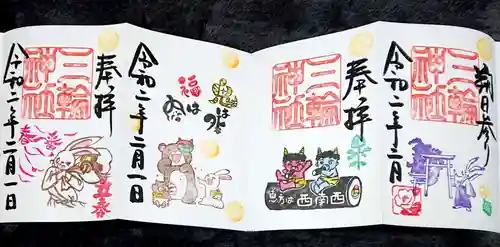 朔日参り
三輪神社
令和二年二月
奉拝
三輪神社
恵方は西南西
鬼は外
福は内
令和二年二月一日
奉拝
三輪神社
立春
令和二年二月一日